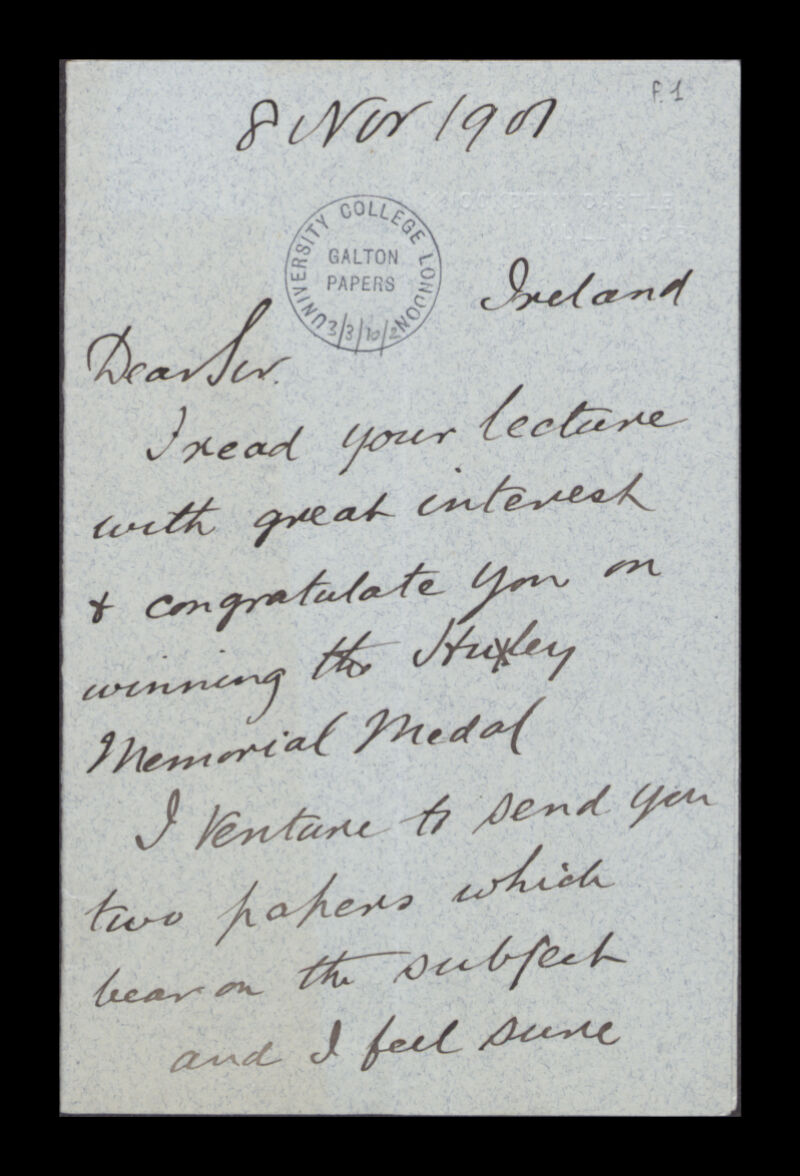 P. 1
8 Nov 1901
CASTLE
UNIVERSITY COLLEGE LONDON
GALTON
PAPERS
3/3/10/2
Ireland
Dear Sir.
I read your lecture
with great interest
& congratulate you on
winning the Huxley
Memorial Medal
I venture to send you
two papers which
bear on the subject
and I feel sure